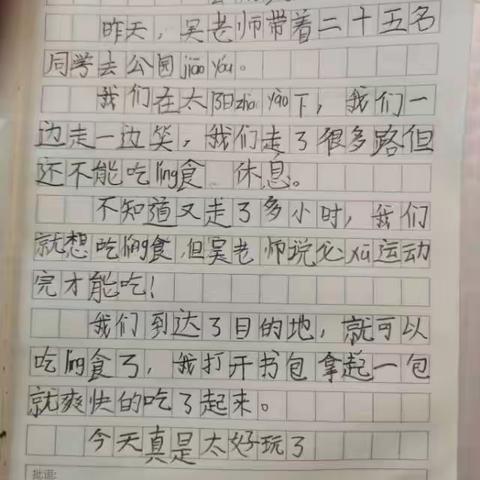 昨天，吴老师带着二十五名
同学去公园jiāo yóu。
我们在太阳zhào yào下，我们一
边走一边笑，我们走了很多路但
还不能吃líng食 休息。
不知道又走了多小时，我们
就想吃líng食，但吴老师说必xū运动
完才能吃！
我们到达了目的地，就可以
吃líng食了，我打开书包拿起一包
就爽快的吃了起来。
今天真是太好玩了
批语: